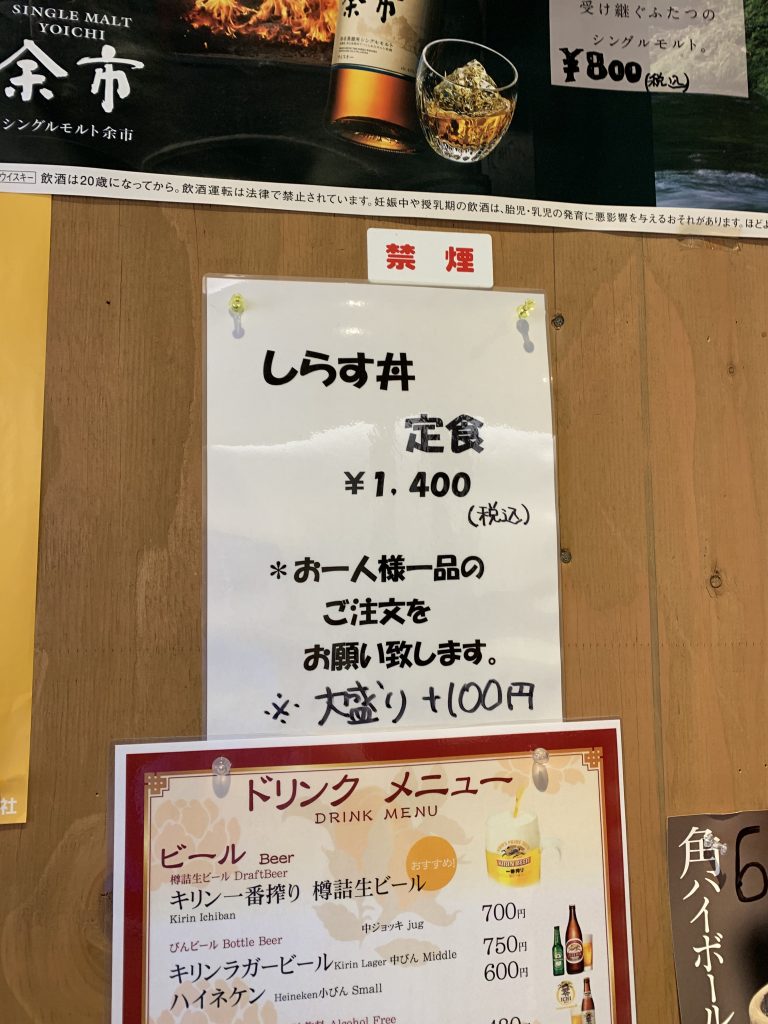 SINGLE MALT
YOICHI
余市
シングルモルト余市
余市
ウイスキー
受け継ぐふたつの
シングルモルト。
¥800(税込)
ウイスキー 飲酒は20歳になってから。飲酒運転は法律で禁止されています。妊娠中や授乳期の飲酒は、胎児・乳児の発育に悪影響を与えるおそれがあります。ほどよ
禁 煙
しらす丼
定食
¥1,400
(税込)
*お一人様一品の
ご注文を
お願い致します。
※大盛り +100円
社
ドリンク メニュー
DRINK MENU
ビール Beer
おすすめ!
樽詰生ビール DraftBeer
キリン一番搾り 樽詰生ビール
Kirin Ichiban
中ジョッキ jug 700円
びんビール Bottle Beer
キリンラガービール Kirin Lager 中びん Middle 750円
ハイネケン Heineken 小びん Small 600円
Alcohol Free
KIRIN BEER
一番搾り
角ハイボール
6